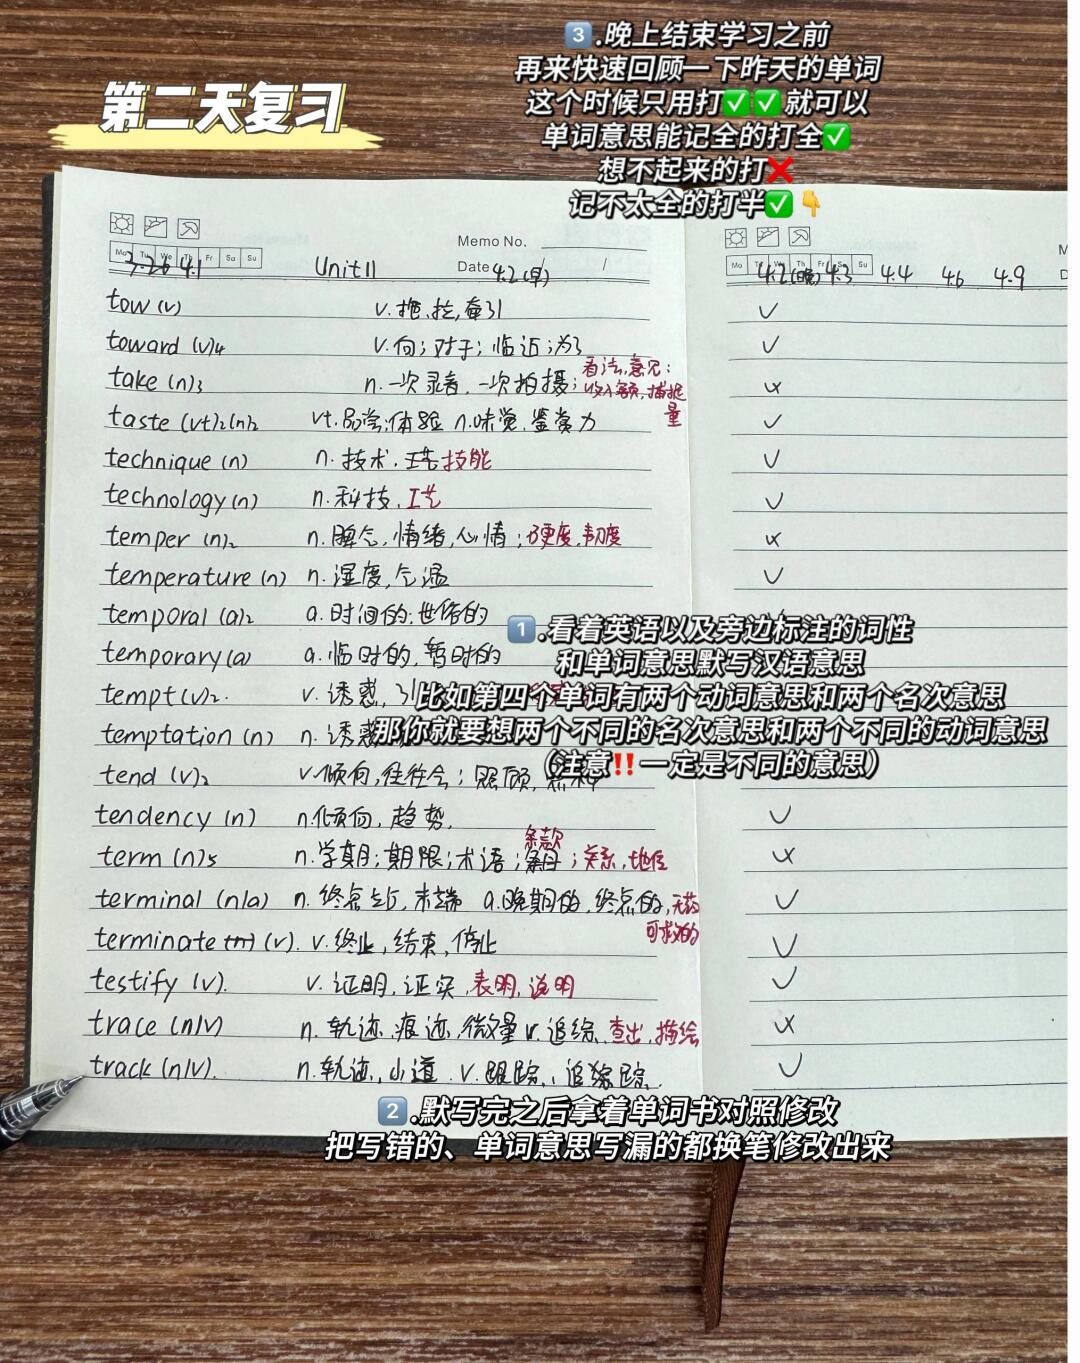 第二天复习
3️⃣.晚上结束学习之前
再来快速回顾一下昨天的单词
这个时候只用打✅✅就可以
单词意思能记全的打全✅
想不起来的打❌
记不太全的打半✅👇
Memo No.
Mo Tu We Th Fr Sa Su
Date / /
3.26 4.1 Unit 11 4.2(早)
Mo Tu We Th Fr Sa Su
4.2(晚) 4.3 4.4 4.6 4.9
tow (v) v.拖、拉,牵引 ✓
toward (v)4 v.向;对于;临近;为了 ✓
take (n)3 n.一次录音,一次拍摄;看法,意见;收入额,捕捉量 ×
taste (vt)2(n)2 vt.品尝;体验 n.味觉,鉴赏力 ✓
technique (n) n.技术,工艺技能 ✓
technology (n) n.科技,工艺 ✓
temper (n)2 n.脾气,情绪,心情;硬度,韧度 ×
temperature (n) n.湿度,气温 ✓
temporal (a)2 a.时间的;世俗的
1️⃣.看着英语以及旁边标注的词性
和单词意思默写汉语意思
比如第四个单词有两个动词意思和两个名次意思
那你就要想两个不同的名次意思和两个不同的动词意思
（注意‼️一定是不同的意思）
temporary (a) a.临时的,暂时的
tempt (v)2. v.诱惑,引
temptation (n) n.诱惑
tend (v)2 v.倾向,往往会;照顾,
tendency (n) n.倾向,趋势, ✓
term (n)5 n.学期;期限;术语;条款;关系,地位 ×
terminal (n/a) n.终点站,末端 a.晚期的,终点的,无药可求的 ✓
terminate (v). v.终止,结束,停止 ✓
testify (v). v.证明,证实,表明,说明 ✓
trace (n/v) n.轨迹,痕迹,微量 v.追踪,查出,描绘 ×
track (n/v). n.轨迹,小道 v.跟踪,追踪 ✓
2️⃣.默写完之后拿着单词书对照修改
把写错的、单词意思写漏的都换笔修改出来